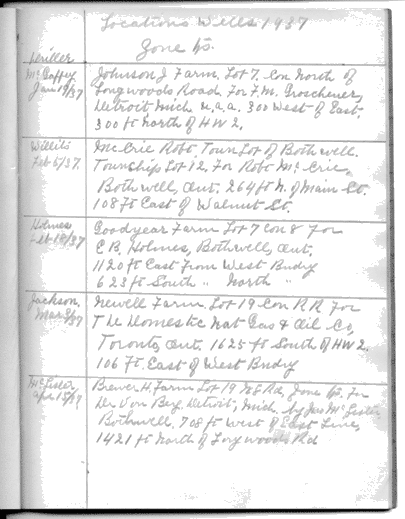 Locations Wells 1937
Zone
Driller
McGaffey
Jan 19/37
Johnson J Farm. Lot 7. Con North of
Longwoods Road For F.M. Groschener,
Detroit Mich 300 West of East.
300 ft North of HW 2.
Willits
Feb 5/37.
McCrie Robt Town Lot of Bothwell.
Township Lot 12. For Robt McCrie,
Bothwell, Ont. 264 ft N. of Main St.
108 Ft East of Walnut St.
Holmes
Feb 18/37
Goodyear Farm Lot 7 Con 8 For
C B. Holmes, Bothwell, Ont.
1120 ft East From West Bndry
623 ft South " North "
Jackson
Mar 9/37
Newell Farm. Lot 19 Con R R For
The Domestic Nat Gas & Oil Co,
Toronto, Ont. 1625 ft South of HW 2.
106 ft. East of West Bndry
McLister
Apr 15/37
Brewer H. Farm Lot 19 Rd, Zone For
Dr Von Berg, Detroit, Mich. by Jas McLister
Bothwell. 708 ft West of East Line,
1421 ft North of Longwoods Rd